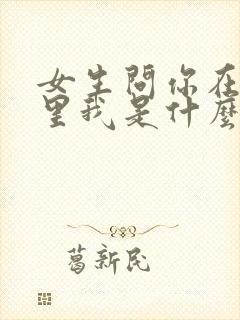 女生問你在
里我是什麼
葛新民